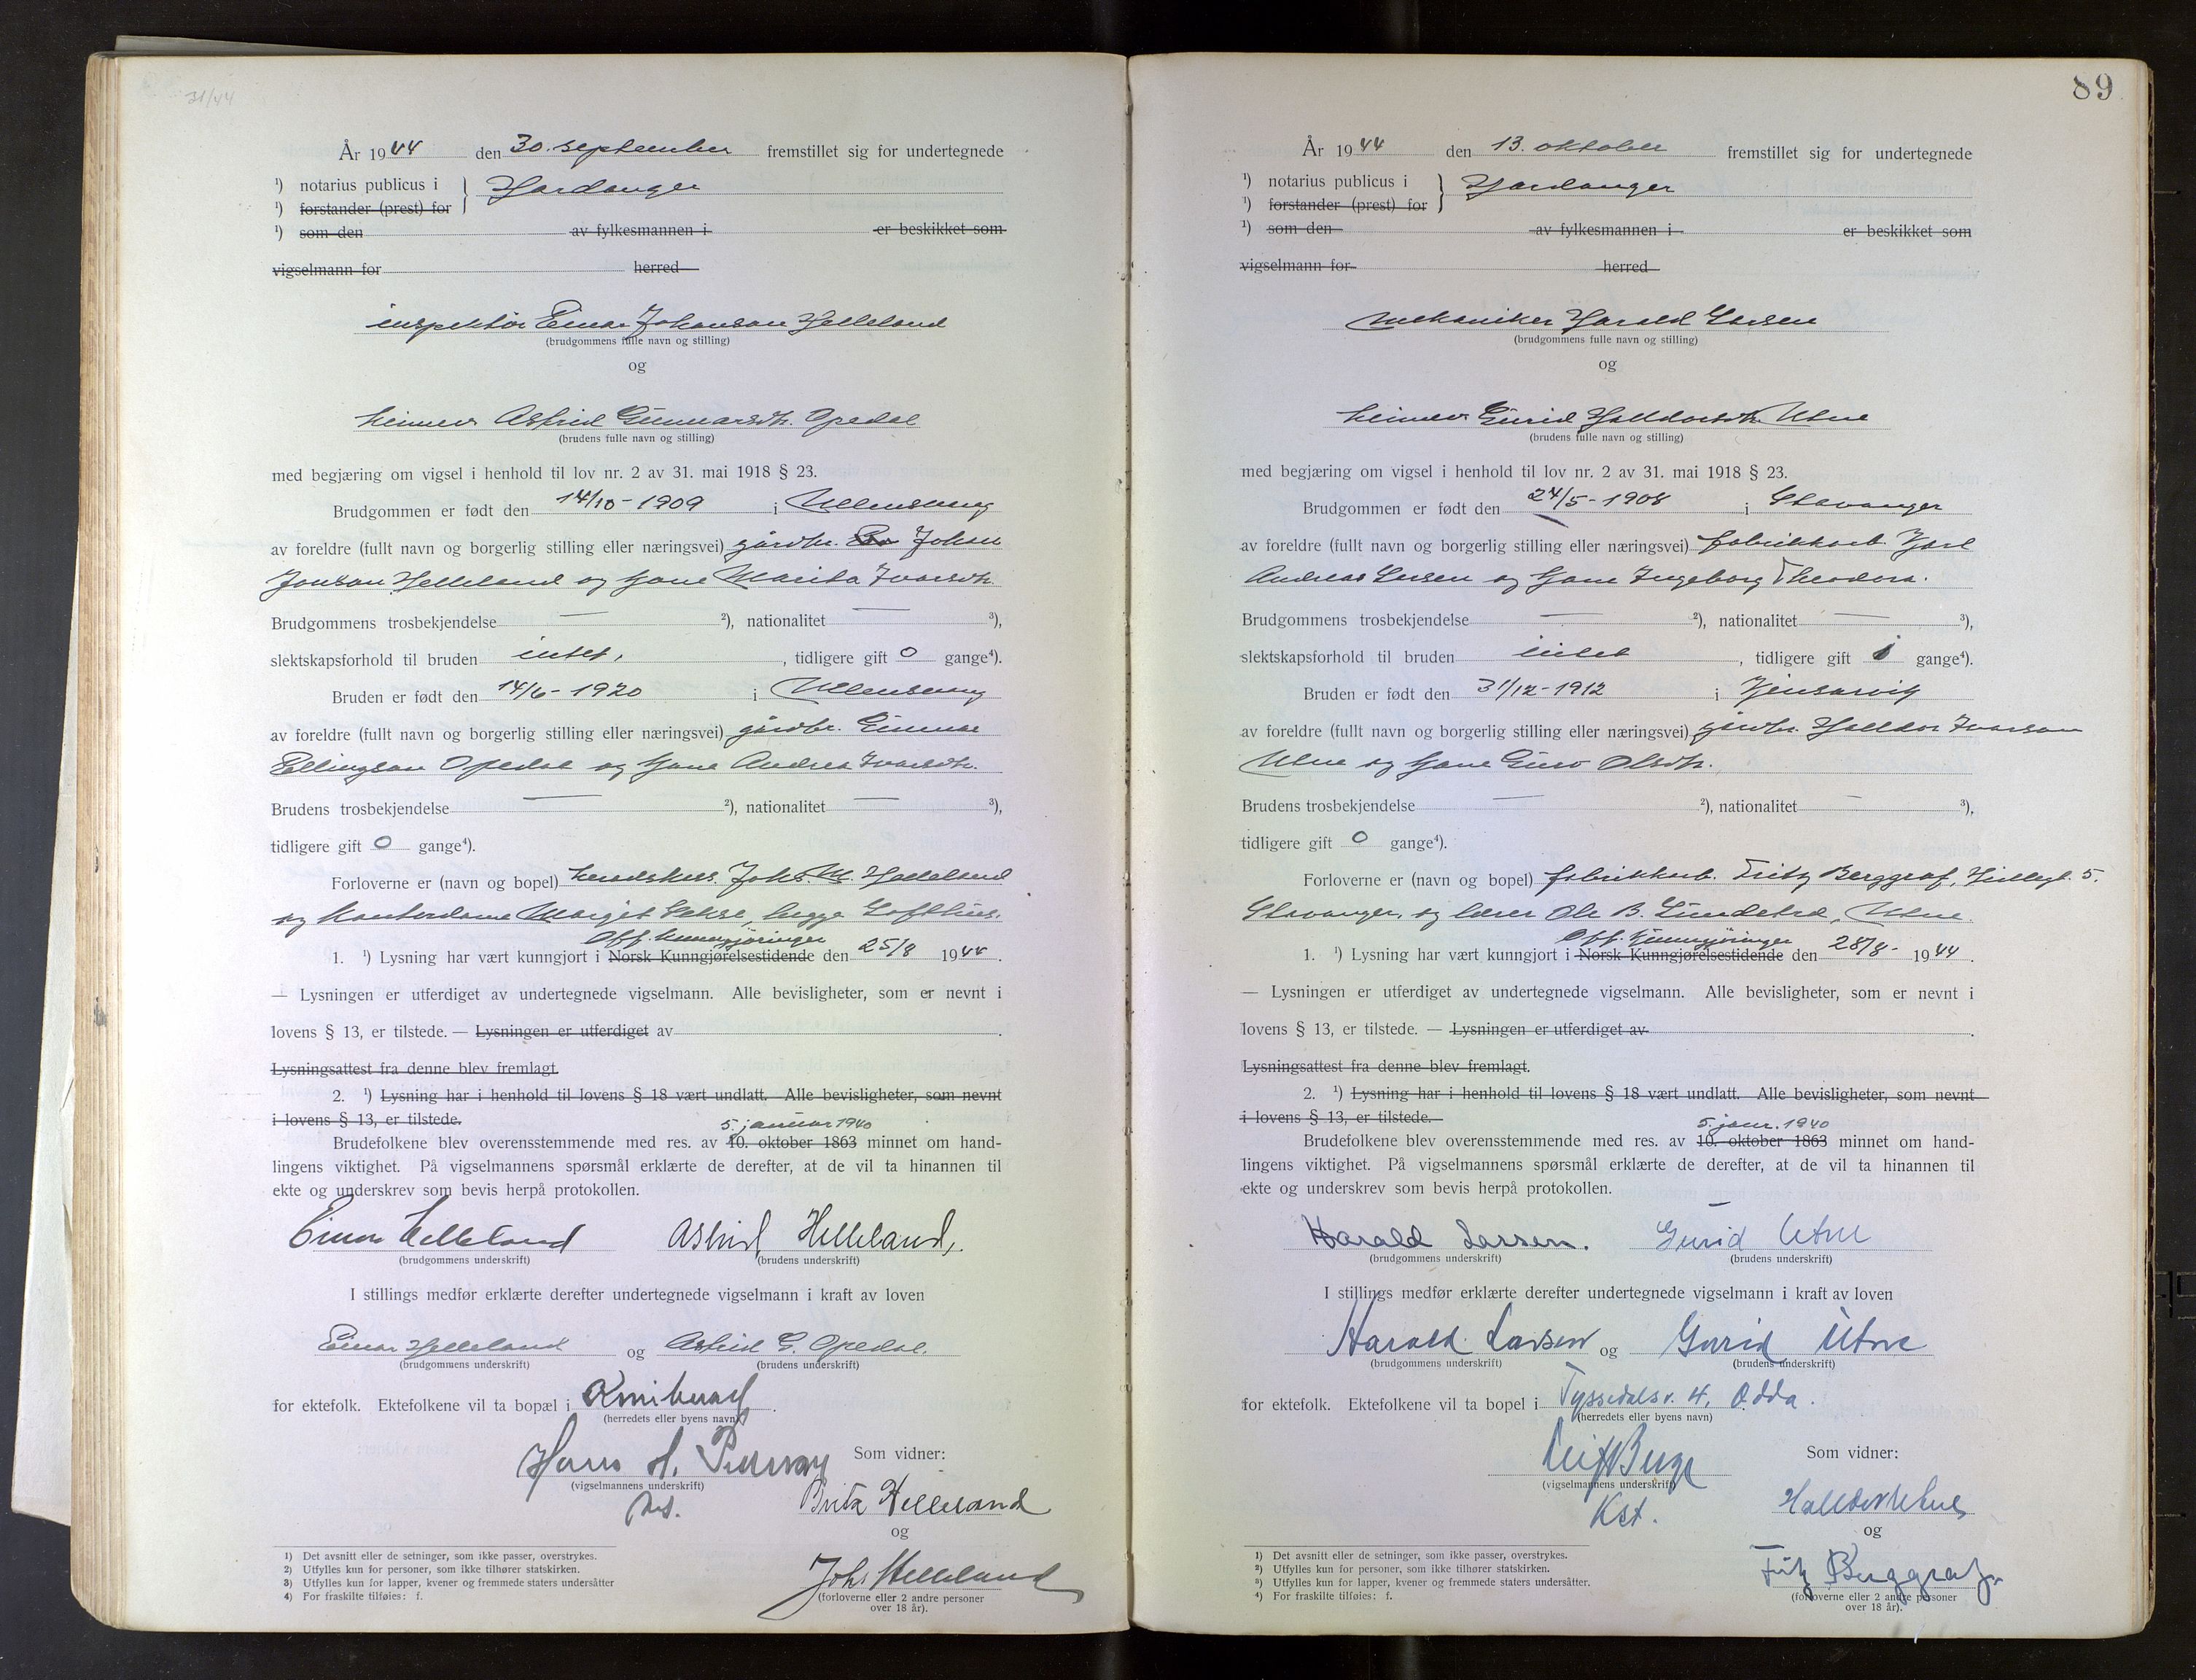 31/44
År 1944 den 30. september fremstillet sig for undertegnede
¹) notarius publicus i } Hardanger
¹) forstander (prest) for
¹) som den av fylkesmannen i er beskikket som
vigselmann for herred
inspektør Einar Johansson Helleland
(brudgommens fulle navn og stilling)
og
heimev. Astrid Gunnarsdtr. Opedal
(brudens fulle navn og stilling)
med begjæring om vigsel i henhold til lov nr. 2 av 31. mai 1918 § 23.
Brudgommen er født den 14/10-1909 i Ullensvang
av foreldre (fullt navn og borgerlig stilling eller næringsvei) gårdbr. Johan
Jonson Helleland og kone Marita Ivarsdtr.
Brudgommens trosbekjendelse — ²), nationalitet — ³),
slektskapsforhold til bruden intet, , tidligere gift 0 gange⁴).
Bruden er født den 14/6-1920 i Ullensvang
av foreldre (fullt navn og borgerlig stilling eller næringsvei) gårdbr. Gunnar
Ellingson Opedal og kone Andrea Ivarsdtr.
Brudens trosbekjendelse — ²), nationalitet — ³),
tidligere gift 0 gange⁴).
Forloverne er (navn og bopel) Johs. M. Helleland
og Margit Sekse, begge Lofthus.
Off. kunngjøringer
1. ¹) Lysning har vært kunngjort i Norsk Kunngjørelsestidende den 25/8 1944.
— Lysningen er utferdiget av undertegnede vigselmann. Alle bevisligheter, som er nevnt i
lovens § 13, er tilstede. — Lysningen er utferdiget av .
Lysningsattest fra denne blev fremlagt.
2. ¹) Lysning har i henhold til lovens § 18 vært undlatt. Alle bevisligheter, som nevnt
i lovens § 13, er tilstede.
5. januar 1940
Brudefolkene blev overensstemmende med res. av 10. oktober 1863 minnet om hand-
lingens viktighet. På vigselmannens spørsmål erklærte de derefter, at de vil ta hinannen til
ekte og underskrev som bevis herpå protokollen.
Einar Helleland Astrid Helleland,.
(brudgommens underskrift) (brudens underskrift)
I stillings medfør erklærte derefter undertegnede vigselmann i kraft av loven
Einar Helleland og Astrid G. Opedal.
(brudgommens underskrift) (brudens underskrift)
for ektefolk. Ektefolkene vil ta bopæl i Kvinherad .
(herredets eller byens navn)
Hans H. Som vidner:
(vigselmannens underskrift)
Brita Helleland
og
Johs Helleland
(forloverne eller 2 andre personer
over 18 år).
¹) Det avsnitt eller de setninger, som ikke passer, overstrykes.
²) Utfylles kun for personer, som ikke tilhører statskirken.
³) Utfylles kun for lapper, kvener og fremmede staters undersåtter
⁴) For fraskilte tilføies: f.
89
År 1944 den 13. oktober fremstillet sig for undertegnede
¹) notarius publicus i } Hardanger
¹) forstander (prest) for
¹) som den av fylkesmannen i er beskikket som
vigselmann for herred
mekaniker Harald Larsen
(brudgommens fulle navn og stilling)
og
heimev. Gurid Halldorsdtr. Utne
(brudens fulle navn og stilling)
med begjæring om vigsel i henhold til lov nr. 2 av 31. mai 1918 § 23.
Brudgommen er født den 24/5-1908 i Stavanger
av foreldre (fullt navn og borgerlig stilling eller næringsvei) fabrikkarb. Karl
Andreas Larsen og kone Ingeborg Theodora.
Brudgommens trosbekjendelse — ²), nationalitet — ³),
slektskapsforhold til bruden intet , tidligere gift gange⁴).
Bruden er født den 31/12-1912 i Kinsarvik
av foreldre (fullt navn og borgerlig stilling eller næringsvei) gårdbr. Halldor Ivarson
Utne og kone Guro Olsdtr.
Brudens trosbekjendelse — ²), nationalitet — ³),
tidligere gift 0 gange⁴).
Forloverne er (navn og bopel) fabrikkarb. Fritz Berggraf, 5.
Stavanger, og lærer Ole B. Lundetræ, Utne.
Off. kunngjøringer
1. ¹) Lysning har vært kunngjort i Norsk Kunngjørelsestidende den 28/8- 1944 .
— Lysningen er utferdiget av undertegnede vigselmann. Alle bevisligheter, som er nevnt i
lovens § 13, er tilstede. — Lysningen er utferdiget av .
Lysningsattest fra denne blev fremlagt.
2. ¹) Lysning har i henhold til lovens § 18 vært undlatt. Alle bevisligheter, som nevnt
i lovens § 13, er tilstede.
5. janr. 1940
Brudefolkene blev overensstemmende med res. av 10. oktober 1863 minnet om hand-
lingens viktighet. På vigselmannens spørsmål erklærte de derefter, at de vil ta hinannen til
ekte og underskrev som bevis herpå protokollen.
Harald Larsen. Gurid Utne
(brudgommens underskrift) (brudens underskrift)
I stillings medfør erklærte derefter undertegnede vigselmann i kraft av loven
Harald Larsen og Gurid Utne
(brudgommens underskrift) (brudens underskrift)
for ektefolk. Ektefolkene vil ta bopel i Tyssedalsv. 4, Odda.
(herredets eller byens navn)
Leif Berge Som vidner:
(vigselmannens underskrift)
Kst. Halldor Utne
og
Fritz Berggraf
(forloverne eller 2 andre personer
over 18 år).
¹) Det avsnitt eller de setninger, som ikke passer, overstrykes.
²) Utfylles kun for personer, som ikke tilhører statskirken.
³) Utfylles kun for lapper, kvener og fremmede staters undersåtter.
⁴) For fraskilte tilføies: f.